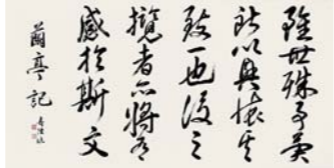 雖世殊事異
所以興懷其
致一也後之
攬者亦將有
感於斯文
蘭亭記